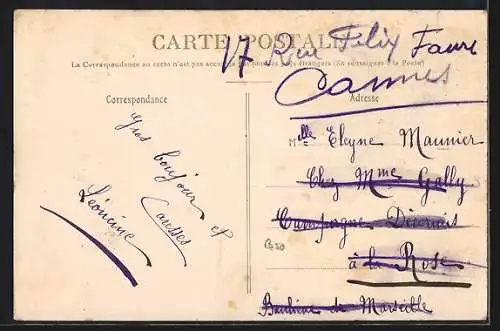 CARTE POSTALE
17 Rue Felix Faure
La Correspondance au verso n'est pas acc pays étrangers (Se renseigner à la Poste)
Cannes
Correspondance
Adresse
Gros bonjour et
Caresses
Léontine
Mlle Eleyne Maunier
Chez Mme Gally
Campagne
à la Rose
Banlieue de Marseille